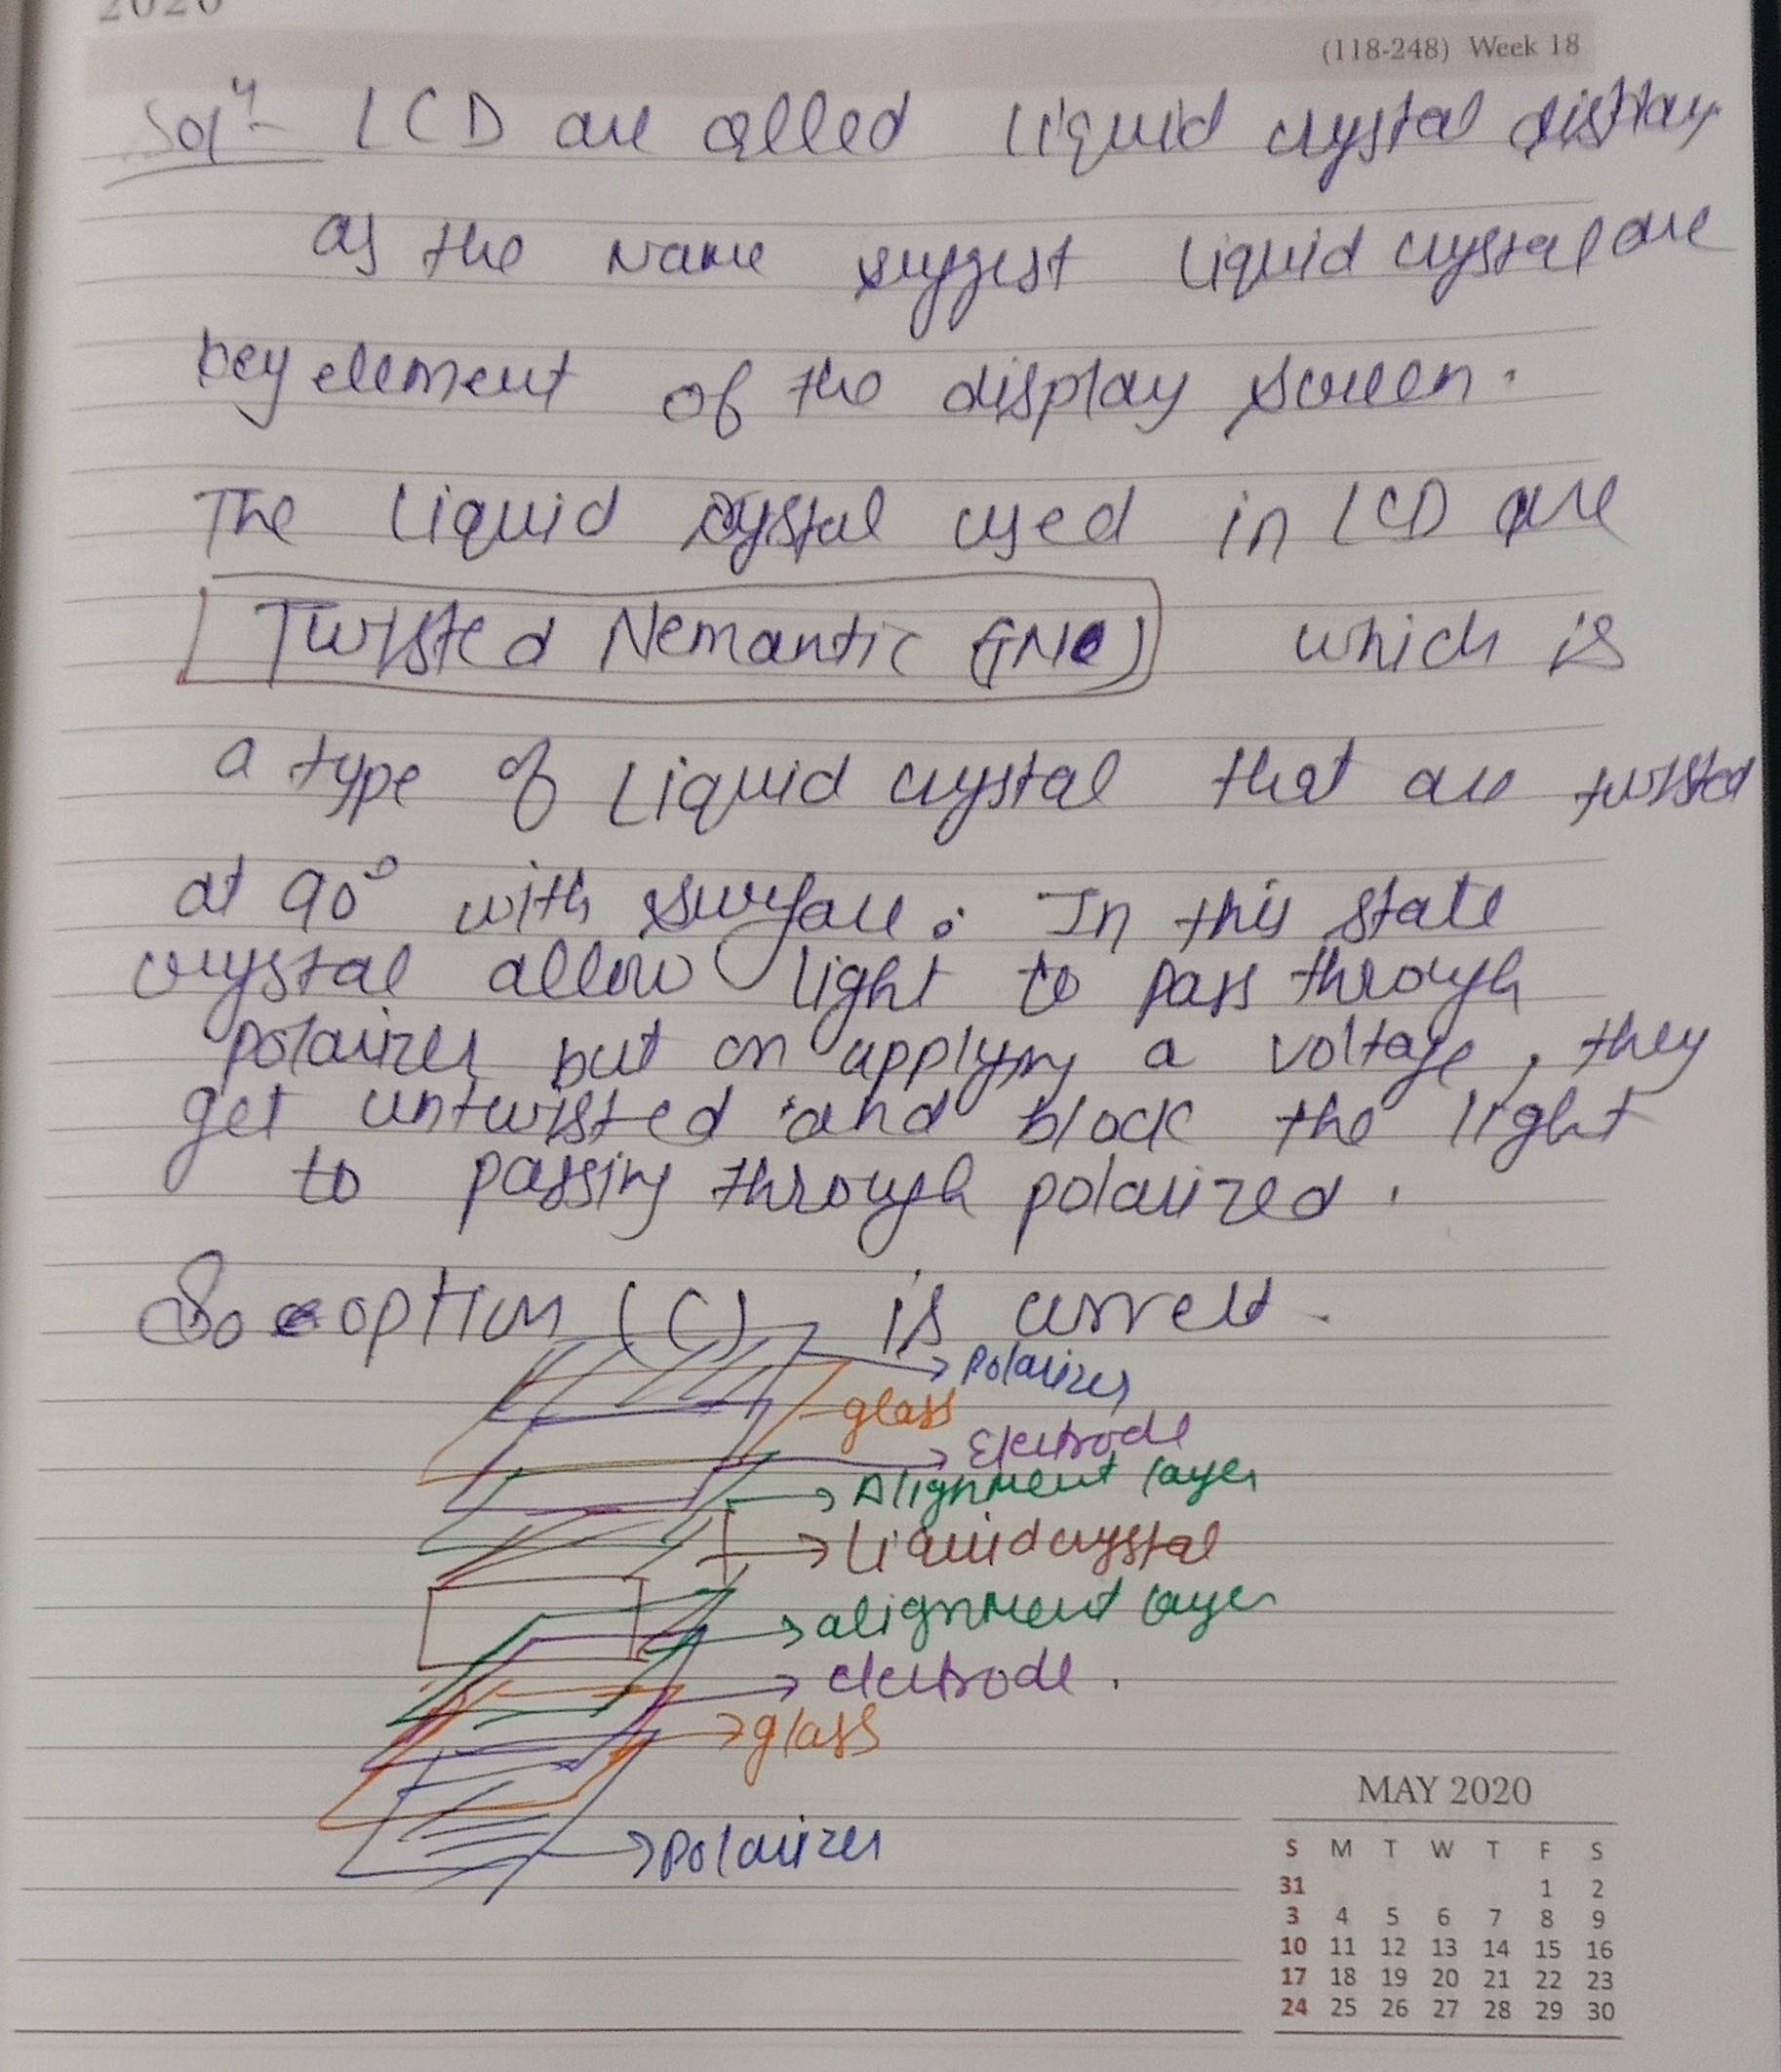 2020
(118-248) Week 18
Solⁿ- LCD are called liquid crystal display
as the name suggest liquid crystal are
key element of the display screen.
The liquid crystal used in LCD are
Twisted Nemantic (TN) which is
a type of liquid crystal that are twisted
at 90° with surface. In this state
crystal allow light to pass through
polarizer but on applying a voltage, they
get untwisted and block the light
to passing through polarized.
So option (C) is correct.
Polarizer
glass
Electrode
Alignment layer
liquid crystal
alignment layer
electrode.
glass
Polarizer
MAY 2020
S M T W T F S
31 1 2
3 4 5 6 7 8 9
10 11 12 13 14 15 16
17 18 19 20 21 22 23
24 25 26 27 28 29 30